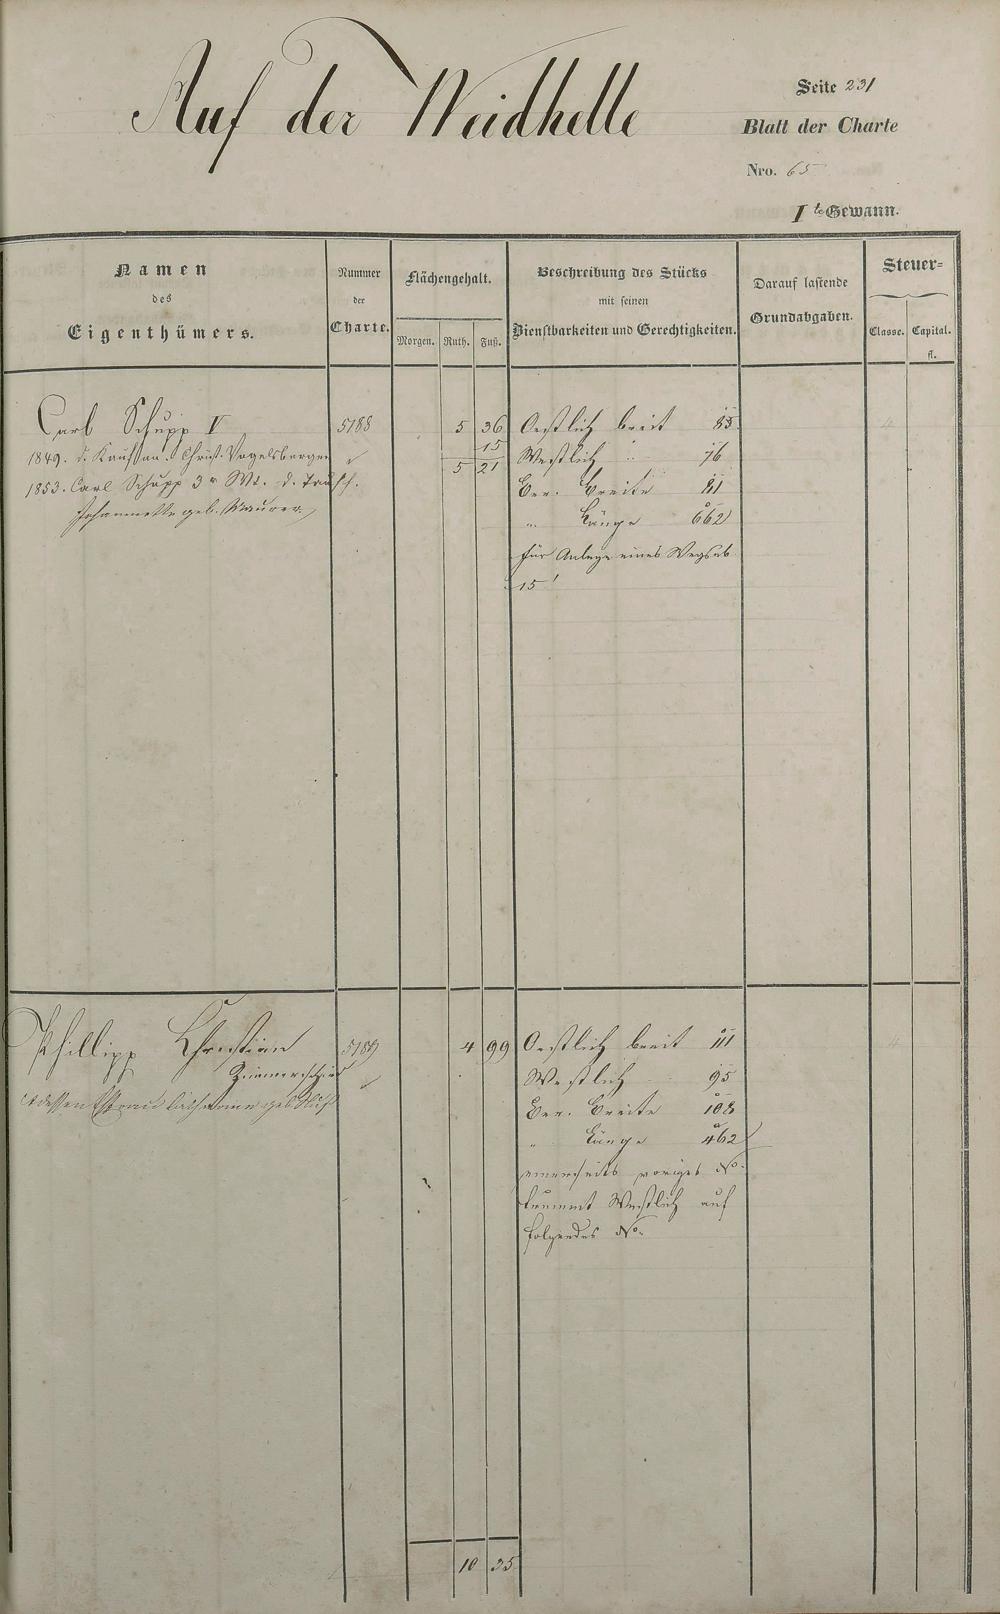 Auf der Weidhelle
Seite 231
Blatt der Charte
Nro. 65
Ite Gewann.
Namen
des
Eigenthümers.
Nummer
der
Charte.
Flächengehalt.
Morgen. Ruth. Fuß.
Beschreibung des Stücks
mit seinen
Dienstbarkeiten und Gerechtigkeiten.
Darauf lastende
Grundabgaben.
Steuer=
Classe. Capital.
fl.
Carl Schupp V 5188 5 36 Oestlich breit 85
15
1849. d. Kauf an Christ. Vogelsberger 5 21 Westlich " 76
1853. Carl Schupp 3r Wt. d. Tausch. Ber. Breite 81
Johannette geb. Maurer. " Länge 662
für Anlage eines Wegs ab
15'
Phillipp Christian 5189 4 99 Oestlich breit 111
Zimmerschied Westlich 95
dessen Ehefrau Catharine geb. Ber. Breite 108
" Länge 462
einerseits voriges No.
kommt Westlich auf
folgendes No.
10 35